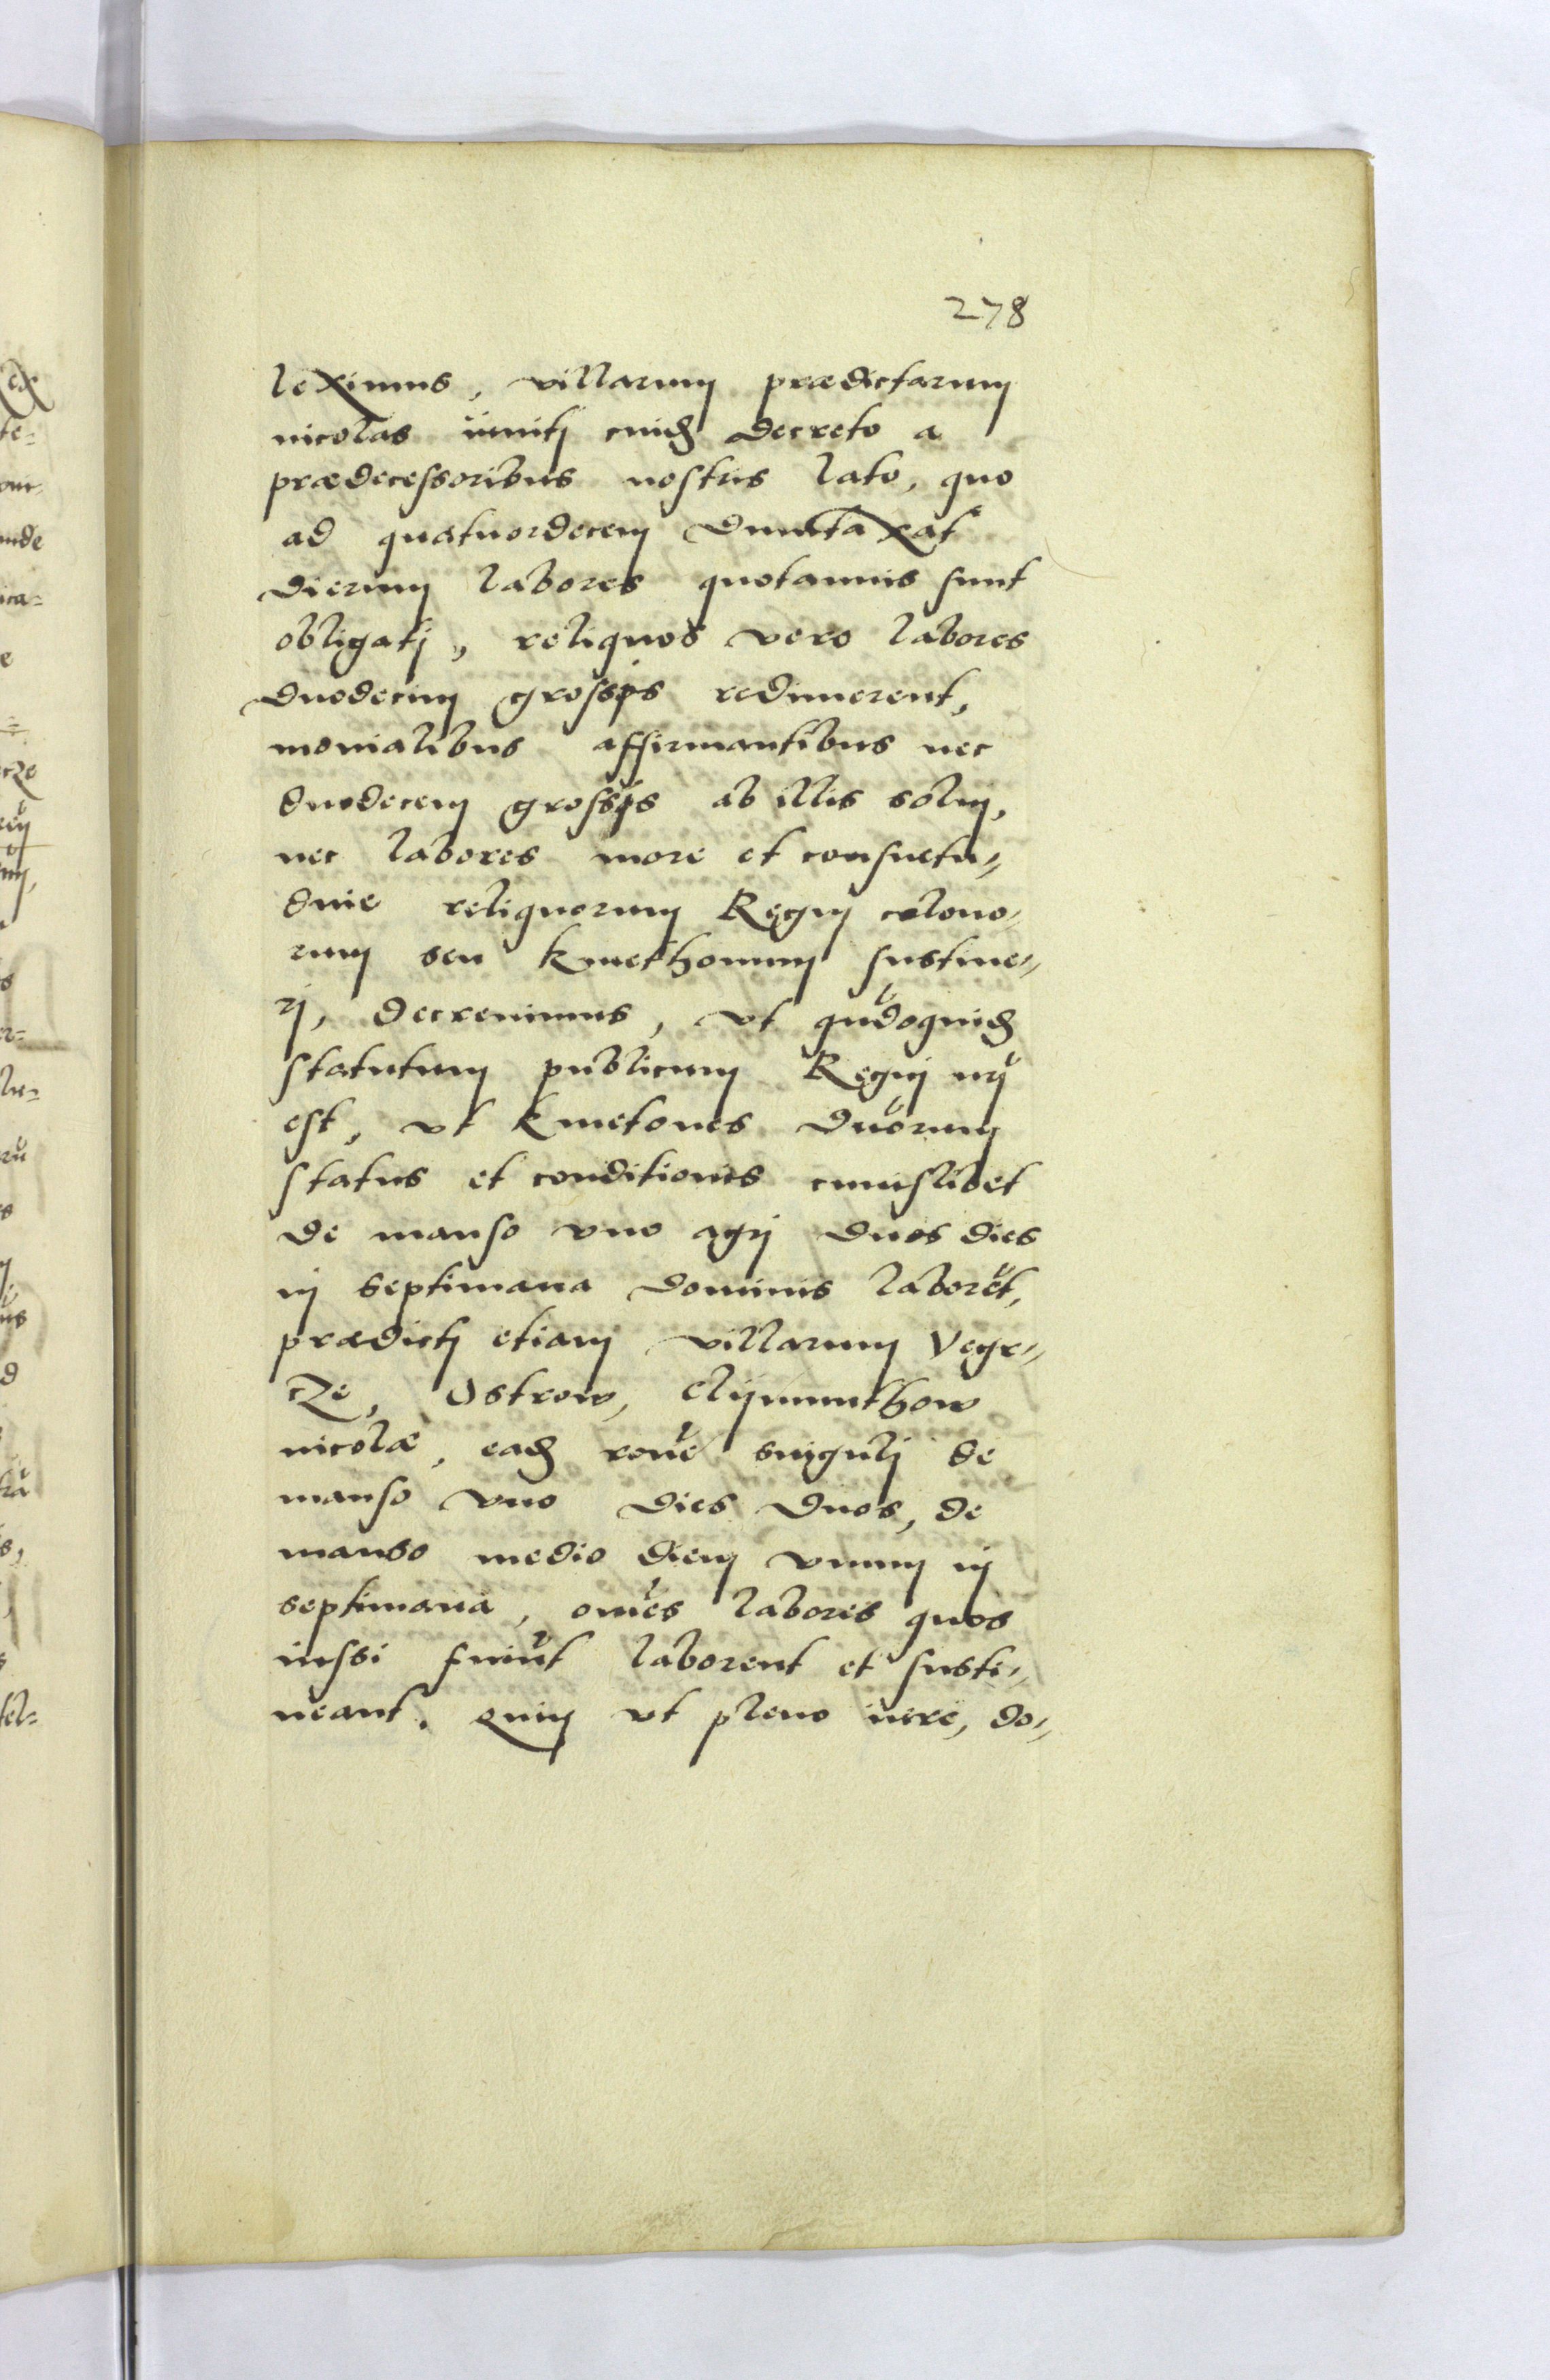 278
leximus, villarum prædictarum
incolas inniti cuidā decreto a
prædecessoribus nostris lato, quo
ad quatuordecem dumtaxat
dierum labores quotannis sunt
obligati, reliquos vero labores
duodecim grossis redimerent,
monialibus affirmantibus nec
duodecem grossis ab illis solui,
nec labores more et consuetu„
dine reliquorum Regni colono„
rum seu kmethonum sustine„
ri, decreuimus, vt qũdoquidē
statutum publicum Regni nrī
est, vt kmetones duorum
status et conditionis cuiuslibet
de manso vno agri duos dies
in septimana dominis laborēt,
prædicti etiam villarum Vegr„
cze, Ostrow, Clijmunthow
incolæ, eadē rōne singuli de
manso vno dies duos, de
manso medio diem vnum in
septimana, omēs labores quos
iussi fuerīt laborent et susti„
neant. quin vt pleno iure, do„